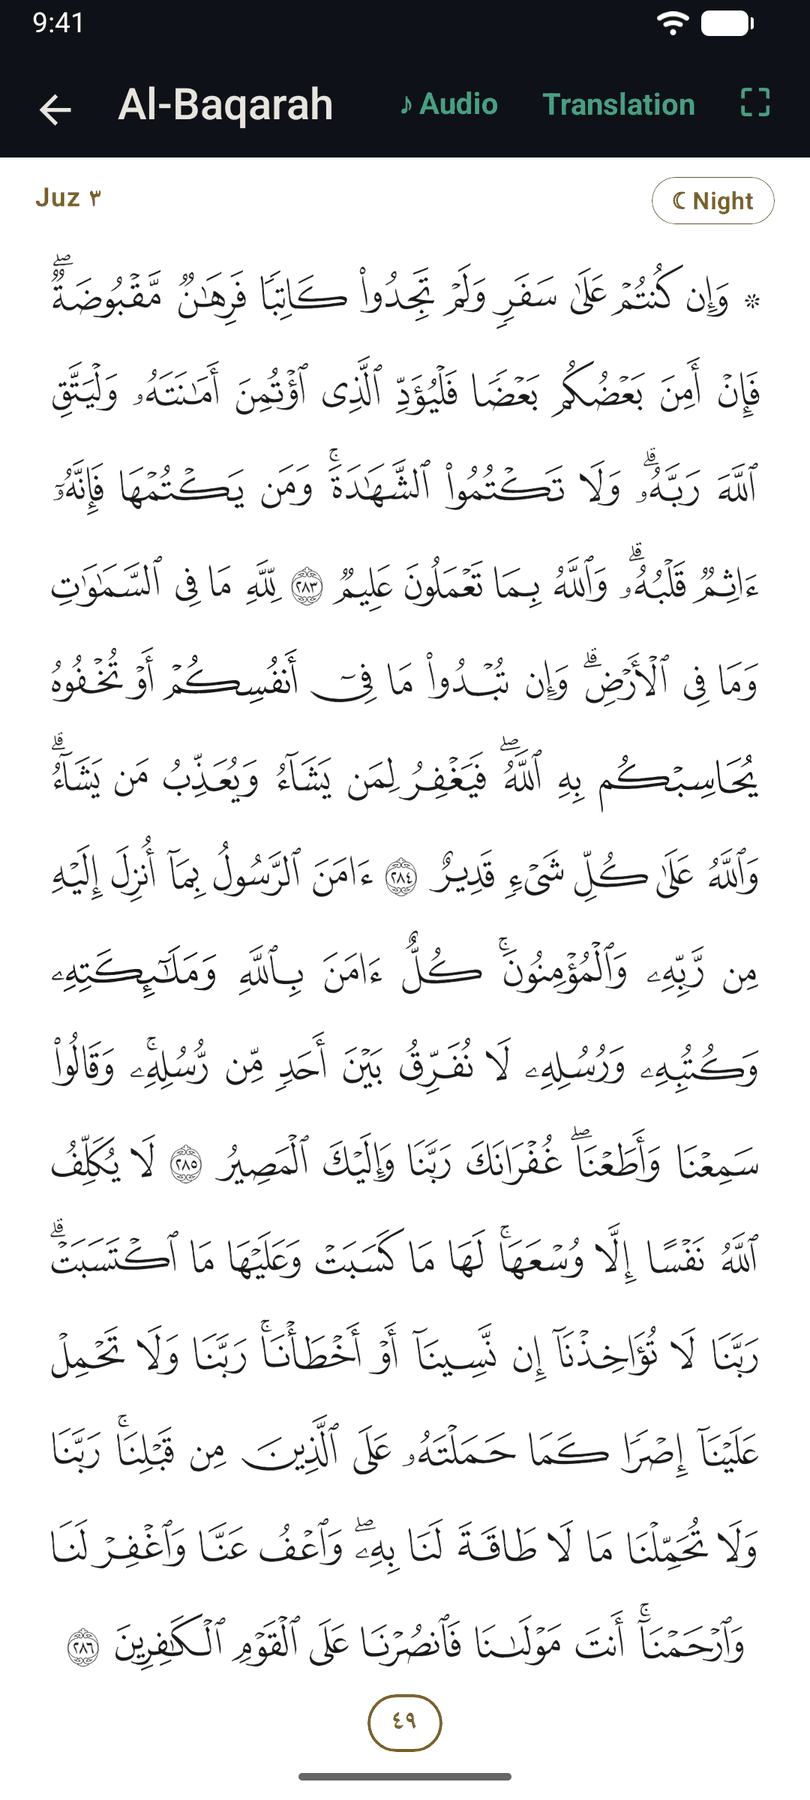 9:41
Al-Baqarah
♪ Audio
Translation
Juz ٣
☾ Night
۞ وَإِن كُنتُمْ عَلَىٰ سَفَرٍ وَلَمْ تَجِدُوا۟ كَاتِبًا فَرِهَـٰنٌ مَّقْبُوضَةٌ ۖ
فَإِنْ أَمِنَ بَعْضُكُم بَعْضًا فَلْيُؤَدِّ ٱلَّذِى ٱؤْتُمِنَ أَمَـٰنَتَهُۥ وَلْيَتَّقِ
ٱللَّهَ رَبَّهُۥ ۗ وَلَا تَكْتُمُوا۟ ٱلشَّهَـٰدَةَ ۚ وَمَن يَكْتُمْهَا فَإِنَّهُۥٓ
ءَاثِمٌ قَلْبُهُۥ ۗ وَٱللَّهُ بِمَا تَعْمَلُونَ عَلِيمٌ ٢٨٣ لِّلَّهِ مَا فِى ٱلسَّمَـٰوَٰتِ
وَمَا فِى ٱلْأَرْضِ ۗ وَإِن تُبْدُوا۟ مَا فِىٓ أَنفُسِكُمْ أَوْ تُخْفُوهُ
يُحَاسِبْكُم بِهِ ٱللَّهُ ۖ فَيَغْفِرُ لِمَن يَشَآءُ وَيُعَذِّبُ مَن يَشَآءُ ۗ
وَٱللَّهُ عَلَىٰ كُلِّ شَىْءٍ قَدِيرٌ ٢٨٤ ءَامَنَ ٱلرَّسُولُ بِمَآ أُنزِلَ إِلَيْهِ
مِن رَّبِّهِۦ وَٱلْمُؤْمِنُونَ ۚ كُلٌّ ءَامَنَ بِٱللَّهِ وَمَلَـٰٓئِكَتِهِۦ
وَكُتُبِهِۦ وَرُسُلِهِۦ لَا نُفَرِّقُ بَيْنَ أَحَدٍ مِّن رُّسُلِهِۦ ۚ وَقَالُوا۟
سَمِعْنَا وَأَطَعْنَا ۖ غُفْرَانَكَ رَبَّنَا وَإِلَيْكَ ٱلْمَصِيرُ ٢٨٥ لَا يُكَلِّفُ
ٱللَّهُ نَفْسًا إِلَّا وُسْعَهَا ۚ لَهَا مَا كَسَبَتْ وَعَلَيْهَا مَا ٱكْتَسَبَتْ ۗ
رَبَّنَا لَا تُؤَاخِذْنَآ إِن نَّسِينَآ أَوْ أَخْطَأْنَا ۚ رَبَّنَا وَلَا تَحْمِلْ
عَلَيْنَآ إِصْرًا كَمَا حَمَلْتَهُۥ عَلَى ٱلَّذِينَ مِن قَبْلِنَا ۚ رَبَّنَا
وَلَا تُحَمِّلْنَا مَا لَا طَاقَةَ لَنَا بِهِۦ ۖ وَٱعْفُ عَنَّا وَٱغْفِرْ لَنَا
وَٱرْحَمْنَآ ۚ أَنتَ مَوْلَىٰنَا فَٱنصُرْنَا عَلَى ٱلْقَوْمِ ٱلْكَـٰفِرِينَ ٢٨٦
٤٩